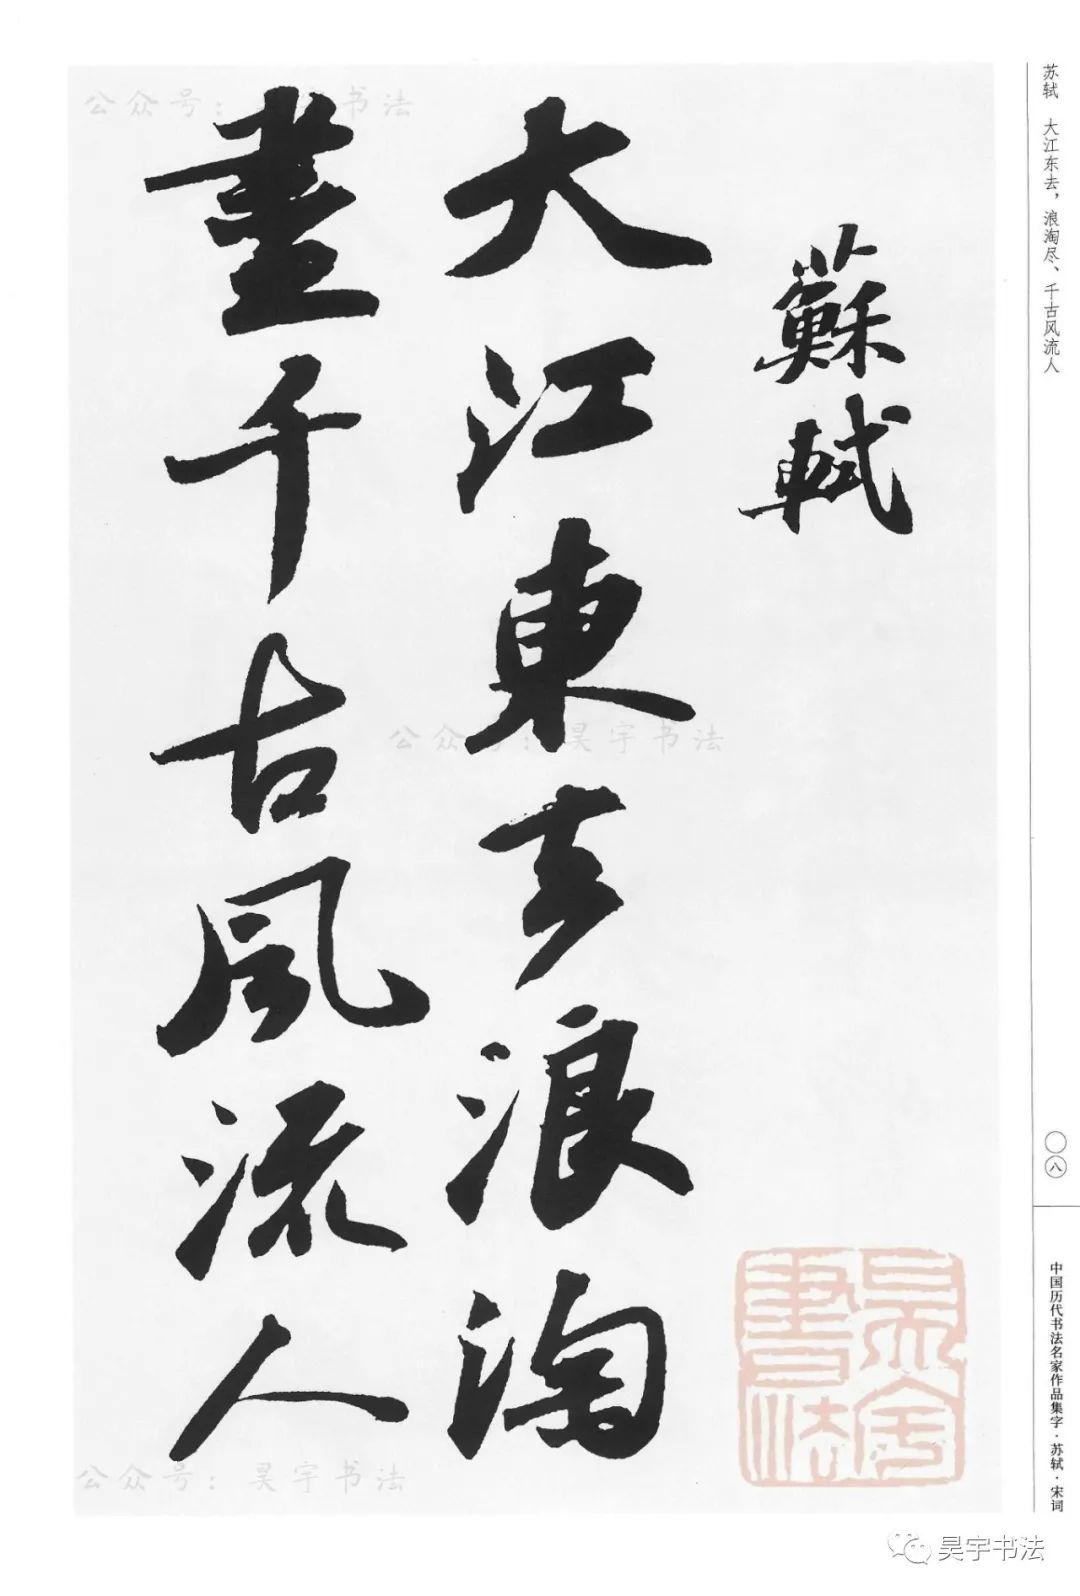 苏轼　大江东去，浪淘尽、千古风流人
〇八
中国历代书法名家作品集字·苏轼·宋词
蘇軾
大江東去浪淘
盡千古風流人
公众号：　　书法
公众号：昊宇书法
公众号：昊宇书法
昊宇書法
昊宇书法